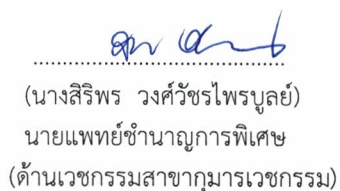 (นางสิริพร วงศ์วัชรไพรบูลย์)
นายแพทย์ชำนาญการพิเศษ
(ด้านเวชกรรมสาขากุมารเวชกรรม)